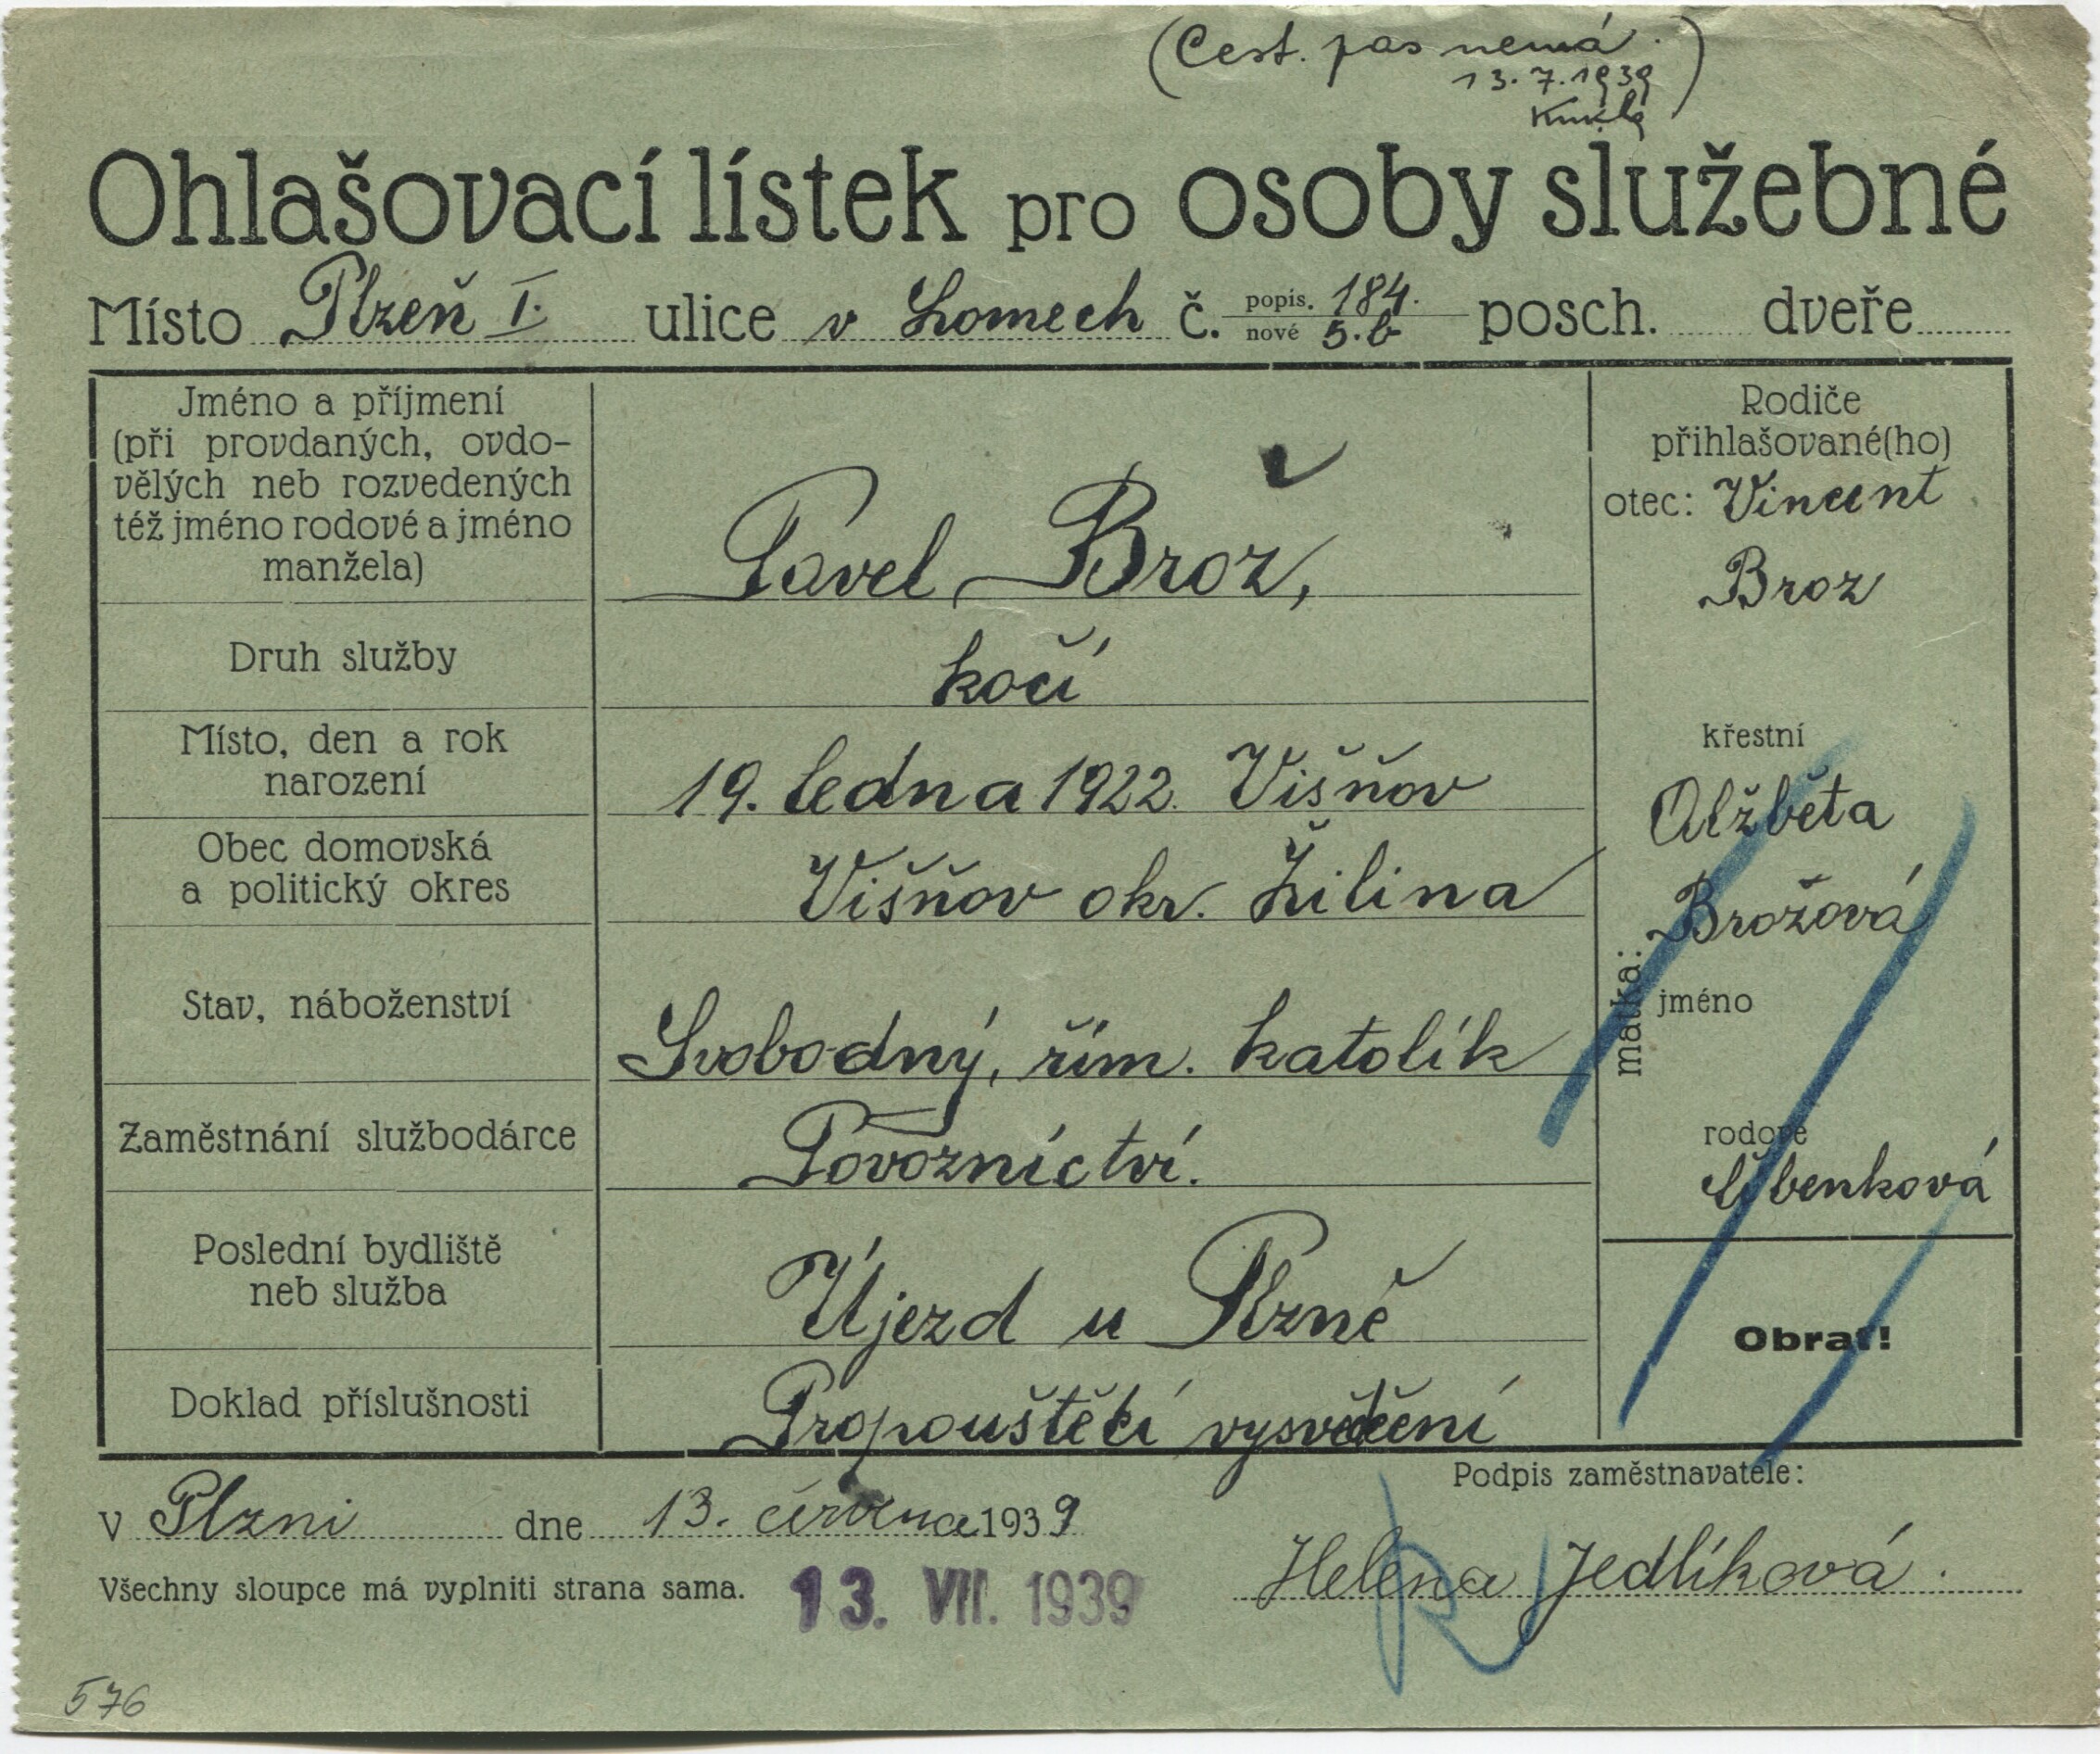 (Cest. pas nemá.)
13. 7. 1939
Ohlašovací lístek pro osoby služebné
Místo Plzeň I. ulice v Lomech č. popis. 184. nové 5.b posch. dveře
Jméno a příjmení
(při provdaných, ovdo-
vělých neb rozvedených
též jméno rodové a jméno
manžela)
Pavel Brož,
Druh služby
kočí
Místo, den a rok
narození
19. ledna 1922. Višňov
Obec domovská
a politický okres
Višňov okr. Žilina
Stav, náboženství
Svobodný, řím. katolík
Zaměstnání službodárce
Povoznictví.
Poslední bydliště
neb služba
Újezd u Plzně
Doklad příslušnosti
Propouštěcí vysvědčení
Rodiče
přihlašované(ho)
otec: Vincent
Broz
matka:
křestní
Alžběta
Brožová
jméno
rodové
Obrať!
v Plzni dne 13. června 1939
Podpis zaměstnavatele:
Všechny sloupce má vyplniti strana sama.
13. VII. 1939
Helena Jedlíková.
576